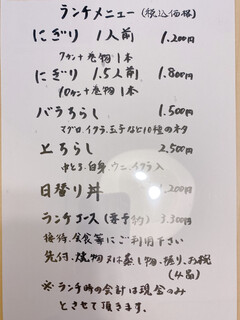 ランチメニュー(税込価格)
にぎり 1人前 1,200円
7カン+巻物1本
にぎり 1.5人前 1,800円
10カン+巻物1本
バラちらし 1,500円
マグロ、イクラ、玉子など10種のネタ
上ちらし 2,500円
中とろ、白身、ウニ、イクラ入
日替り丼 1,200円
ランチコース(要予約) 3,300円
接待、会食等にご利用下さい
先付、焼物又は蒸し物、握り、お椀
(4品)
※ランチ時の会計は現金のみ
とさせて頂きます。